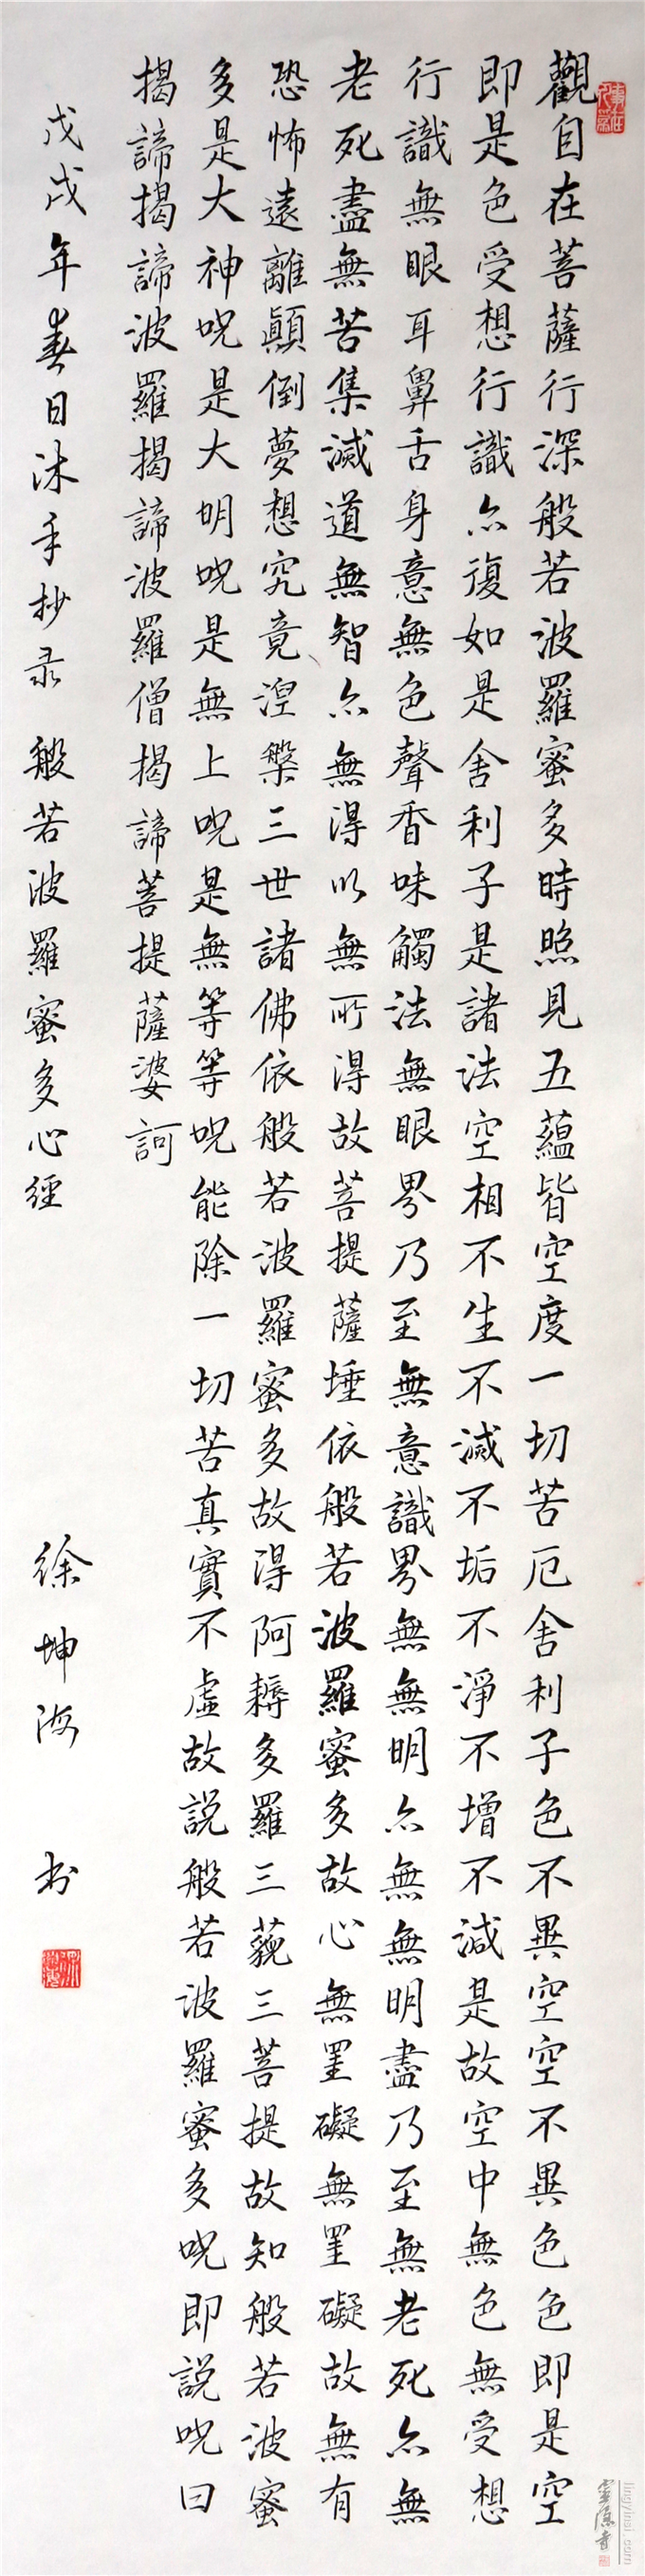 觀自在菩薩行深般若波羅蜜多時照見五蘊皆空度一切苦厄舍利子色不異空空不異色色即是空
即是色受想行識亦復如是舍利子是諸法空相不生不滅不垢不淨不增不減是故空中無色無受想
行識無眼耳鼻舌身意無色聲香味觸法無眼界乃至無意識界無無明亦無無明盡乃至無老死亦無
老死盡無苦集滅道無智亦無得以無所得故菩提薩埵依般若波羅蜜多故心無罣礙無罣礙故無有
恐怖遠離顛倒夢想究竟涅槃三世諸佛依般若波羅蜜多故得阿耨多羅三藐三菩提故知般若波蜜
多是大神咒是大明咒是無上咒是無等等咒能除一切苦真實不虛故說般若波羅蜜多咒即說咒曰
揭諦揭諦波羅揭諦波羅僧揭諦菩提薩婆訶
戊戌年春日沐手抄录 般若波羅蜜多心經 徐坤海 书
lingyinsi.com